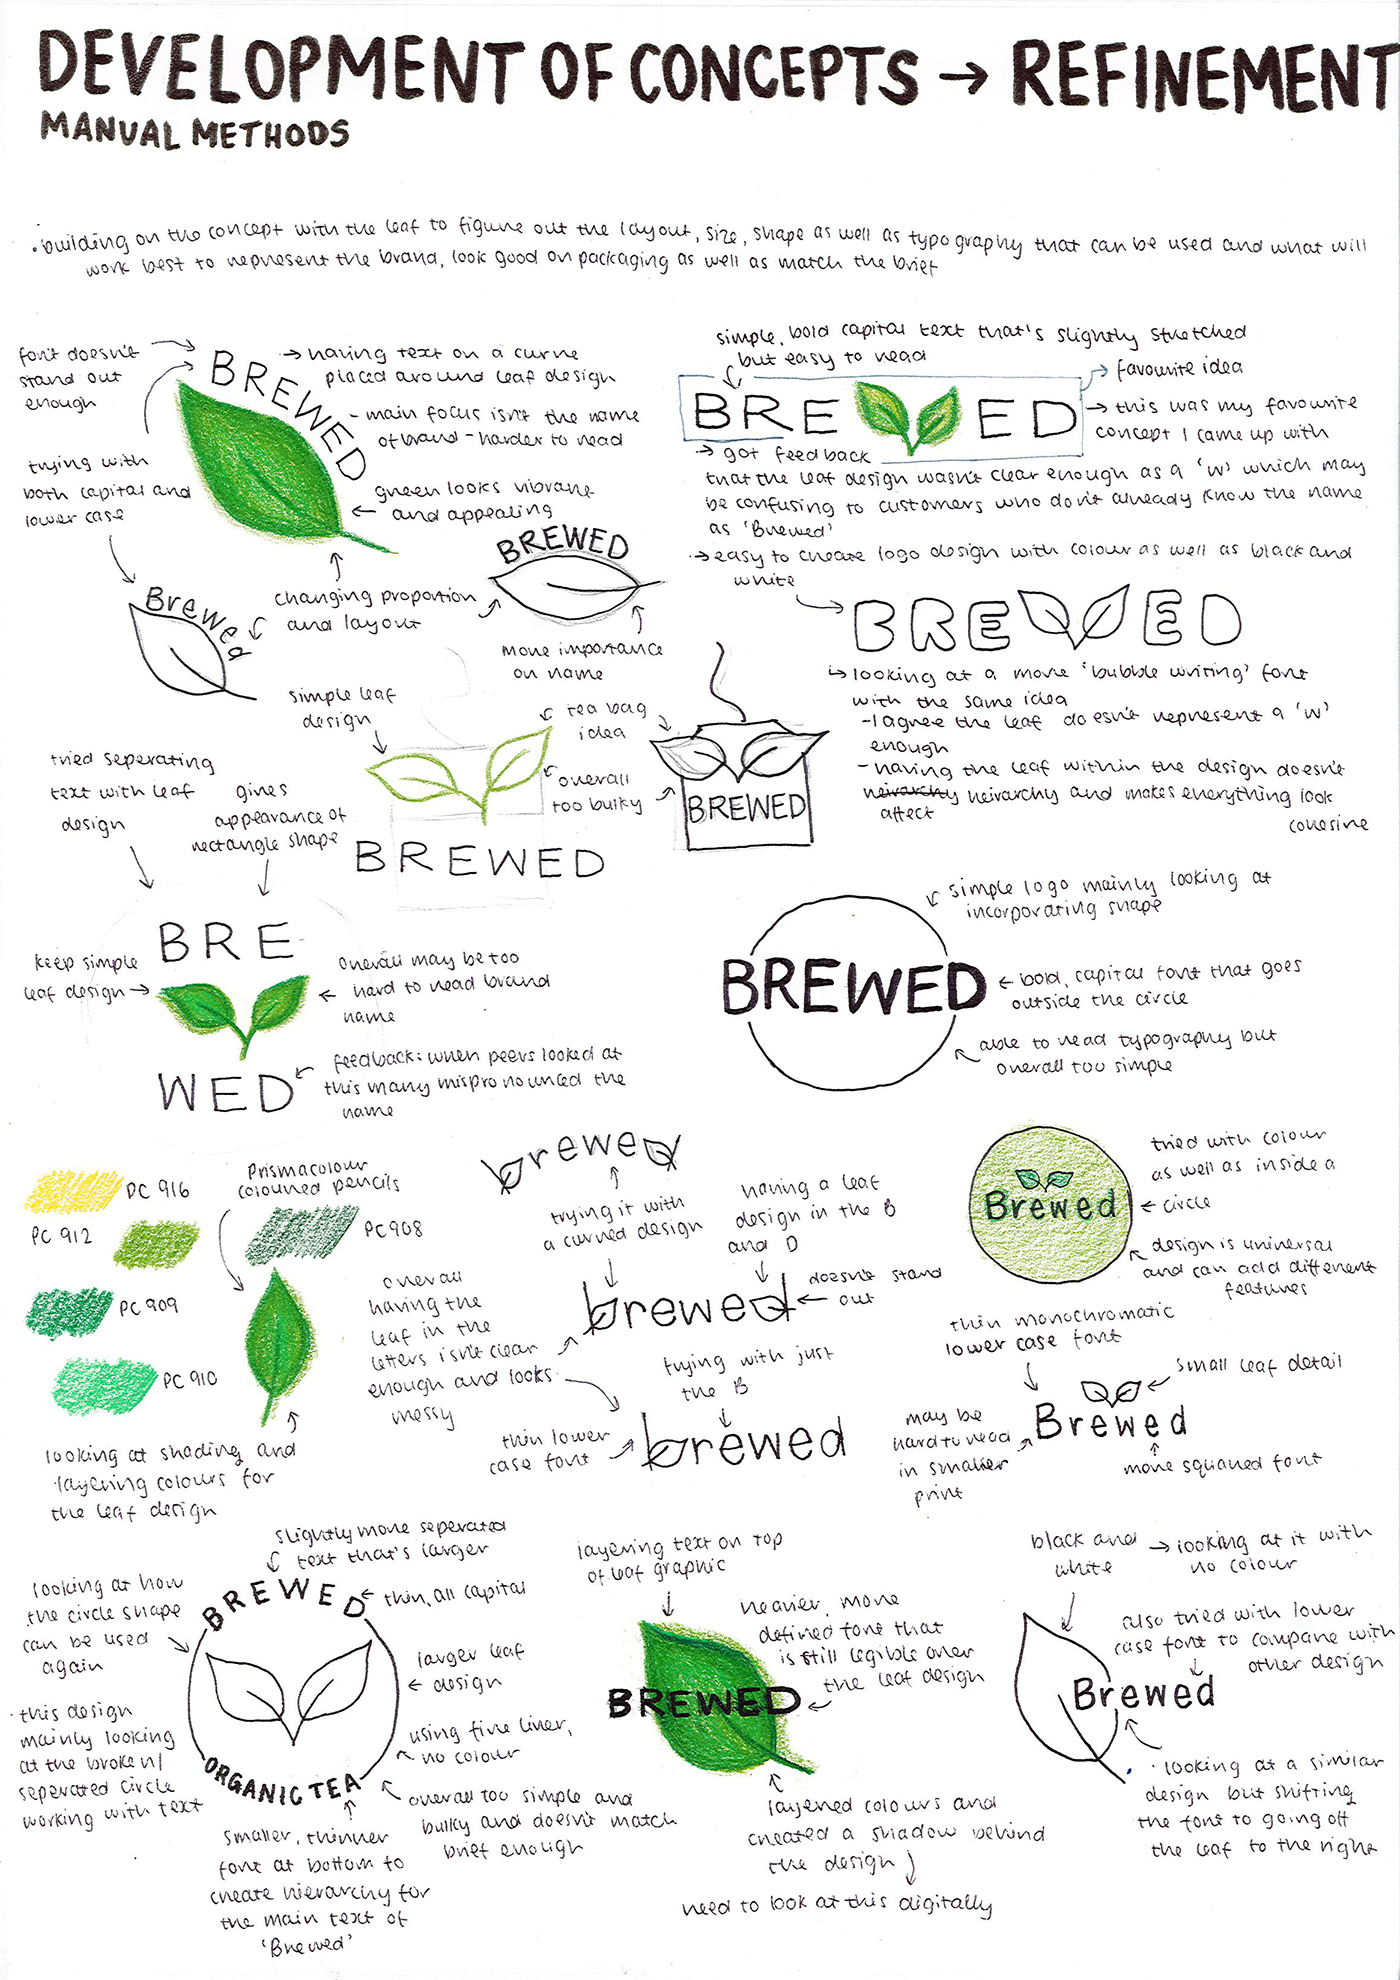 DEVELOPMENT OF CONCEPTS → REFINEMENT
MANUAL METHODS
• building on the concept with the leaf to figure out the layout, size, shape as well as typography that can be used and what will
work best to represent the brand, look good on packaging as well as match the brief
font doesn't
stand out
enough
BREWED
→ having text on a curve
placed around leaf design
- main focus isn't the name
of brand - harder to read
green looks vibrant
and appealing
trying with
both capital and
lower case
Brewed
changing proportion
and layout
BREWED
more importance
on name
simple, bold capital text that's slightly stretched
but easy to read
BRE ED
favourite idea
→ this was my favourite
concept I came up with
→ got feedback
that the leaf design wasn't clear enough as a 'w' which may
be confusing to customers who don't already know the name
as 'Brewed'
→ easy to create logo design with colour as well as black and
white
BRE ED
↳ looking at a more 'bubble writing' font
with the same idea
- I agree the leaf doesn't represent a 'w'
enough
- having the leaf within the design doesn't
heirarchy heirarchy and makes everything look
affect
cohesive
simple leaf
design
tea bag
idea
overall
too bulky
BREWED
BREWED
tried seperating
text with leaf
design
gives
appearance of
rectangle shape
BRE
keep simple
leaf design →
overall may be too
hard to read brand
name
WED
feedback: when peers looked at
this many mispronounced the
name
simple logo mainly looking at
incorporating shape
BREWED
← bold, capital font that goes
outside the circle
able to read typography but
overall too simple
PC 916
PC 912
Prismacolour
coloured pencils
PC 908
PC 909
PC 910
looking at shading and
layering colours for
the leaf design
brewed
trying it with
a curved design
having a leaf
design in the B
and D
brewed
doesn't stand
out
overall
having the
leaf in the
letters isn't clear
enough and looks
messy
trying with just
the B
thin lower
case font
brewed
Brewed
tried with colour
as well as inside a
← circle
design is universal
and can add different
features
thin monochromatic
lower case font
small leaf detail
Brewed
may be
hard to read
in smaller
print
more squared font
slightly more seperated
text that's larger
BREWED
← thin, all capital
looking at how
the circle shape
can be used
again
larger leaf
← design
• this design
mainly looking
at the broken/
seperated circle
working with text
using fine liner,
no colour
ORGANIC TEA
overall too simple and
bulky and doesn't match
brief enough
smaller, thinner
font at bottom to
create hierarchy for
the main text of
'Brewed'
layering text on top
of leaf graphic
heavier, more
defined font that
is still legible over
the leaf design
BREWED
layered colours and
created a shadow behind
the design
need to look at this digitally
black and
white
→ looking at it with
no colour
also tried with lower
case font to compare with
other design
Brewed
• looking at a similar
design but shifting
the font to going off
the leaf to the right